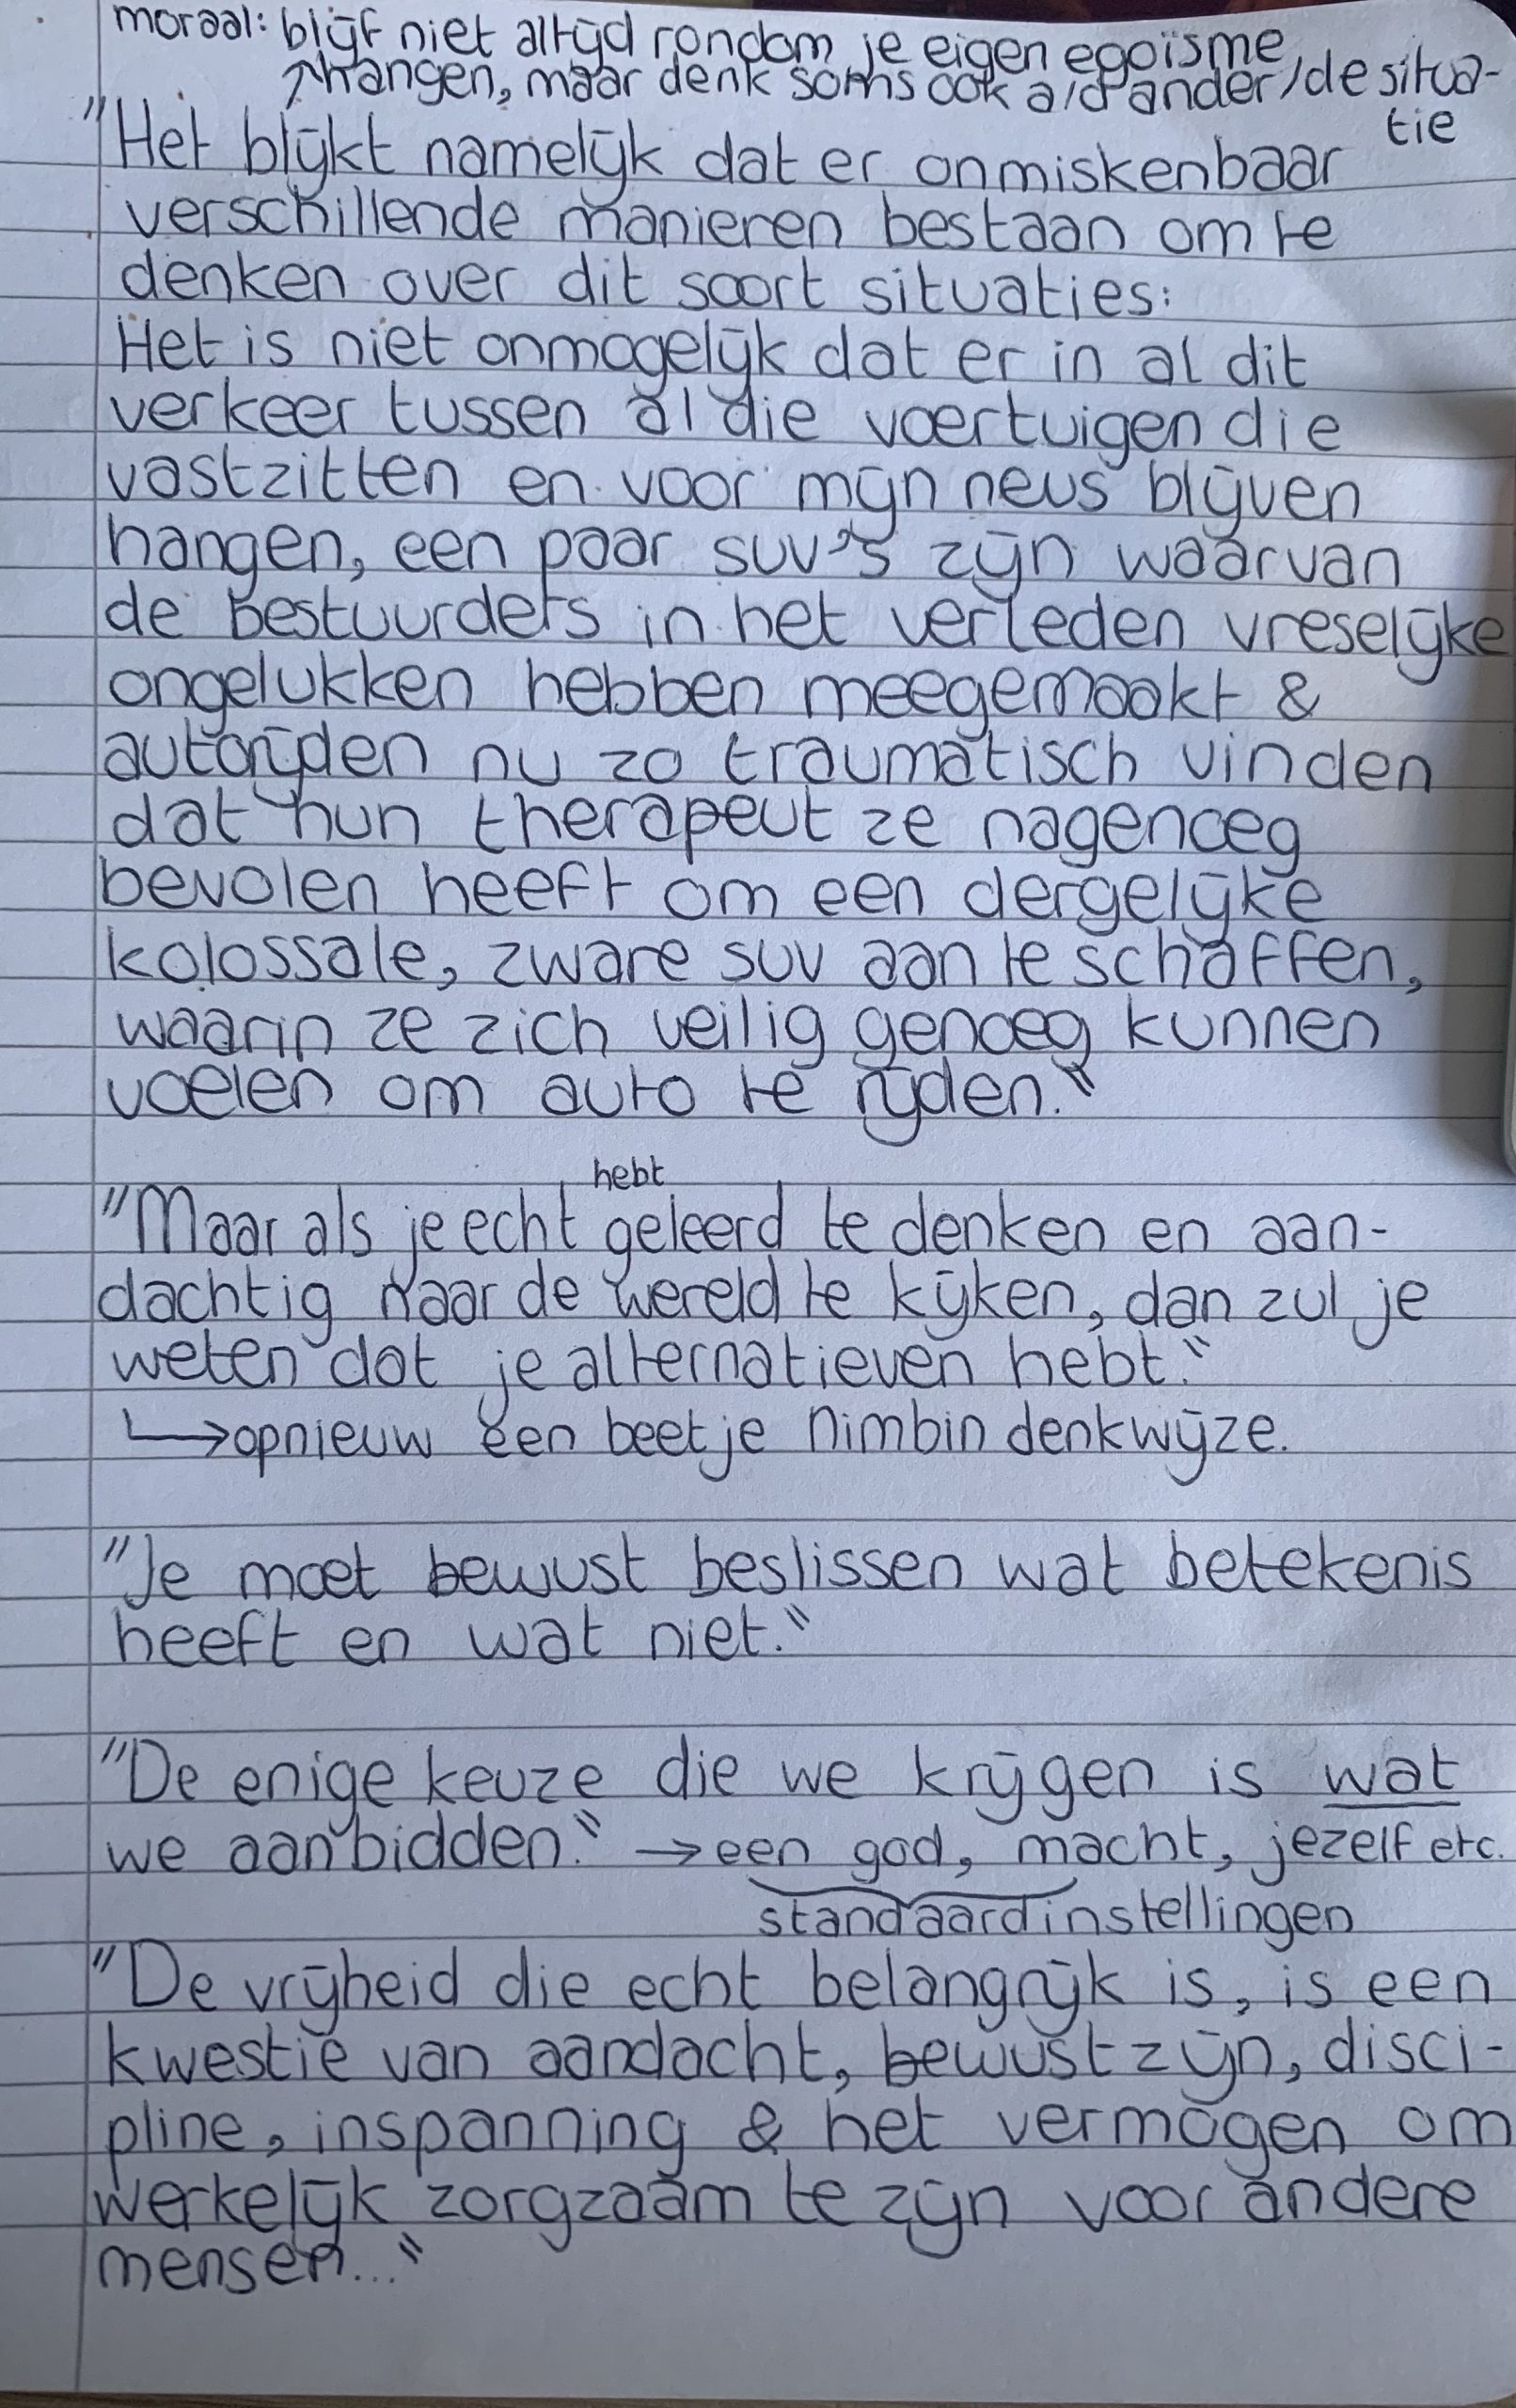 moraal: blijf niet altijd rondom je eigen egoïsme
↗hangen, maar denk soms ook a/d ander/de situa-
tie
"Het blijkt namelijk dat er onmiskenbaar
verschillende manieren bestaan om te
denken over dit soort situaties:
Het is niet onmogelijk dat er in al dit
verkeer tussen al die voertuigen die
vastzitten en voor mijn neus blijven
hangen, een paar suv's zijn waarvan
de bestuurders in het verleden vreselijke
ongelukken hebben meegemaakt &
autorijden nu zo traumatisch vinden
dat hun therapeut ze nagenoeg
bevolen heeft om een dergelijke
kolossale, zware suv aan te schaffen,
waarin ze zich veilig genoeg kunnen
voelen om auto te rijden."
hebt
"Maar als je echt geleerd te denken en aan-
dachtig naar de wereld te kijken, dan zul je
weten dat je alternatieven hebt."
↳opnieuw een beetje Nimbin denkwijze.
"Je moet bewust beslissen wat betekenis
heeft en wat niet."
"De enige keuze die we krijgen is wat
we aanbidden." → een god, macht, jezelf etc.
standaardinstellingen
"De vrijheid die echt belangrijk is, is een
kwestie van aandacht, bewust zijn, disci-
pline, inspanning & het vermogen om
werkelijk zorgzaam te zijn voor andere
mensen..."